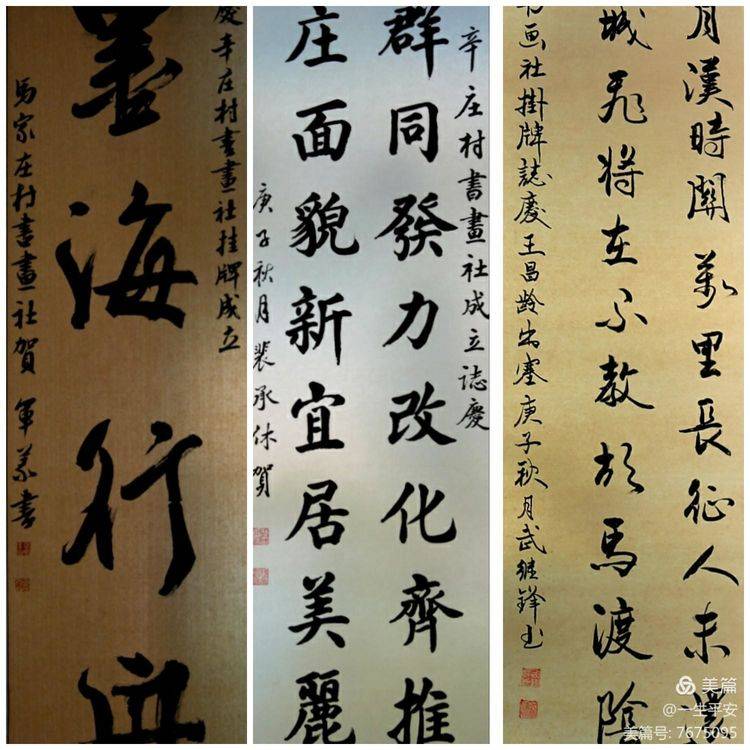 慶辛庄村書畫社挂牌成立
墨海行
馬家庄村書畫社賀 军义書
辛庄村書畫社成立誌慶
群同發力改化齊推
庄面貌新宜居美麗
庚子秋月裴承休賀
月漢時關萬里長征人未還
城飛將在不教胡馬渡陰
书画社掛牌誌慶王昌龄出塞庚子秋月武继锋书
美篇
@一生平安
美篇号: 7675095